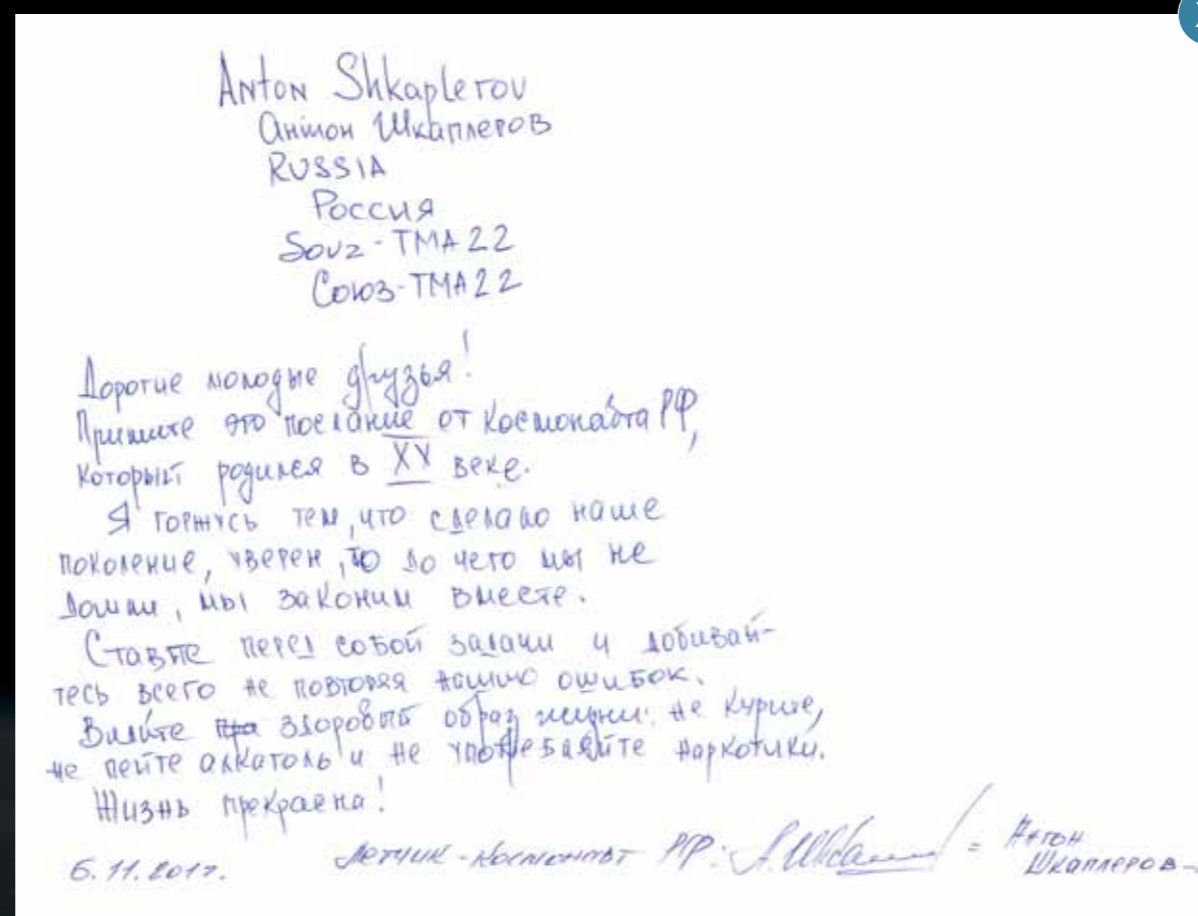 Anton Shkaplerov
Антон Шкаплеров
RUSSIA
Россия
Souz-TMA 22
Союз-ТМА 22
Дорогие молодые друзья!
Примите это послание от космонавта РФ,
который родился в XX веке.
Я горжусь тем, что сделало наше
поколение, уверен, то до чего мы не
дошли, мы закончим вместе.
Ставте перед собой задачи и добивай-
тесь всего не повторяя наших ошибок.
здоровый образ жизни: не курите,
не пейте алкаголь и не употребляйте наркотики.
Жизнь прекрасна!
6.11.2011.
Летчик-космонавт РФ: = Антон
Шкаплеров